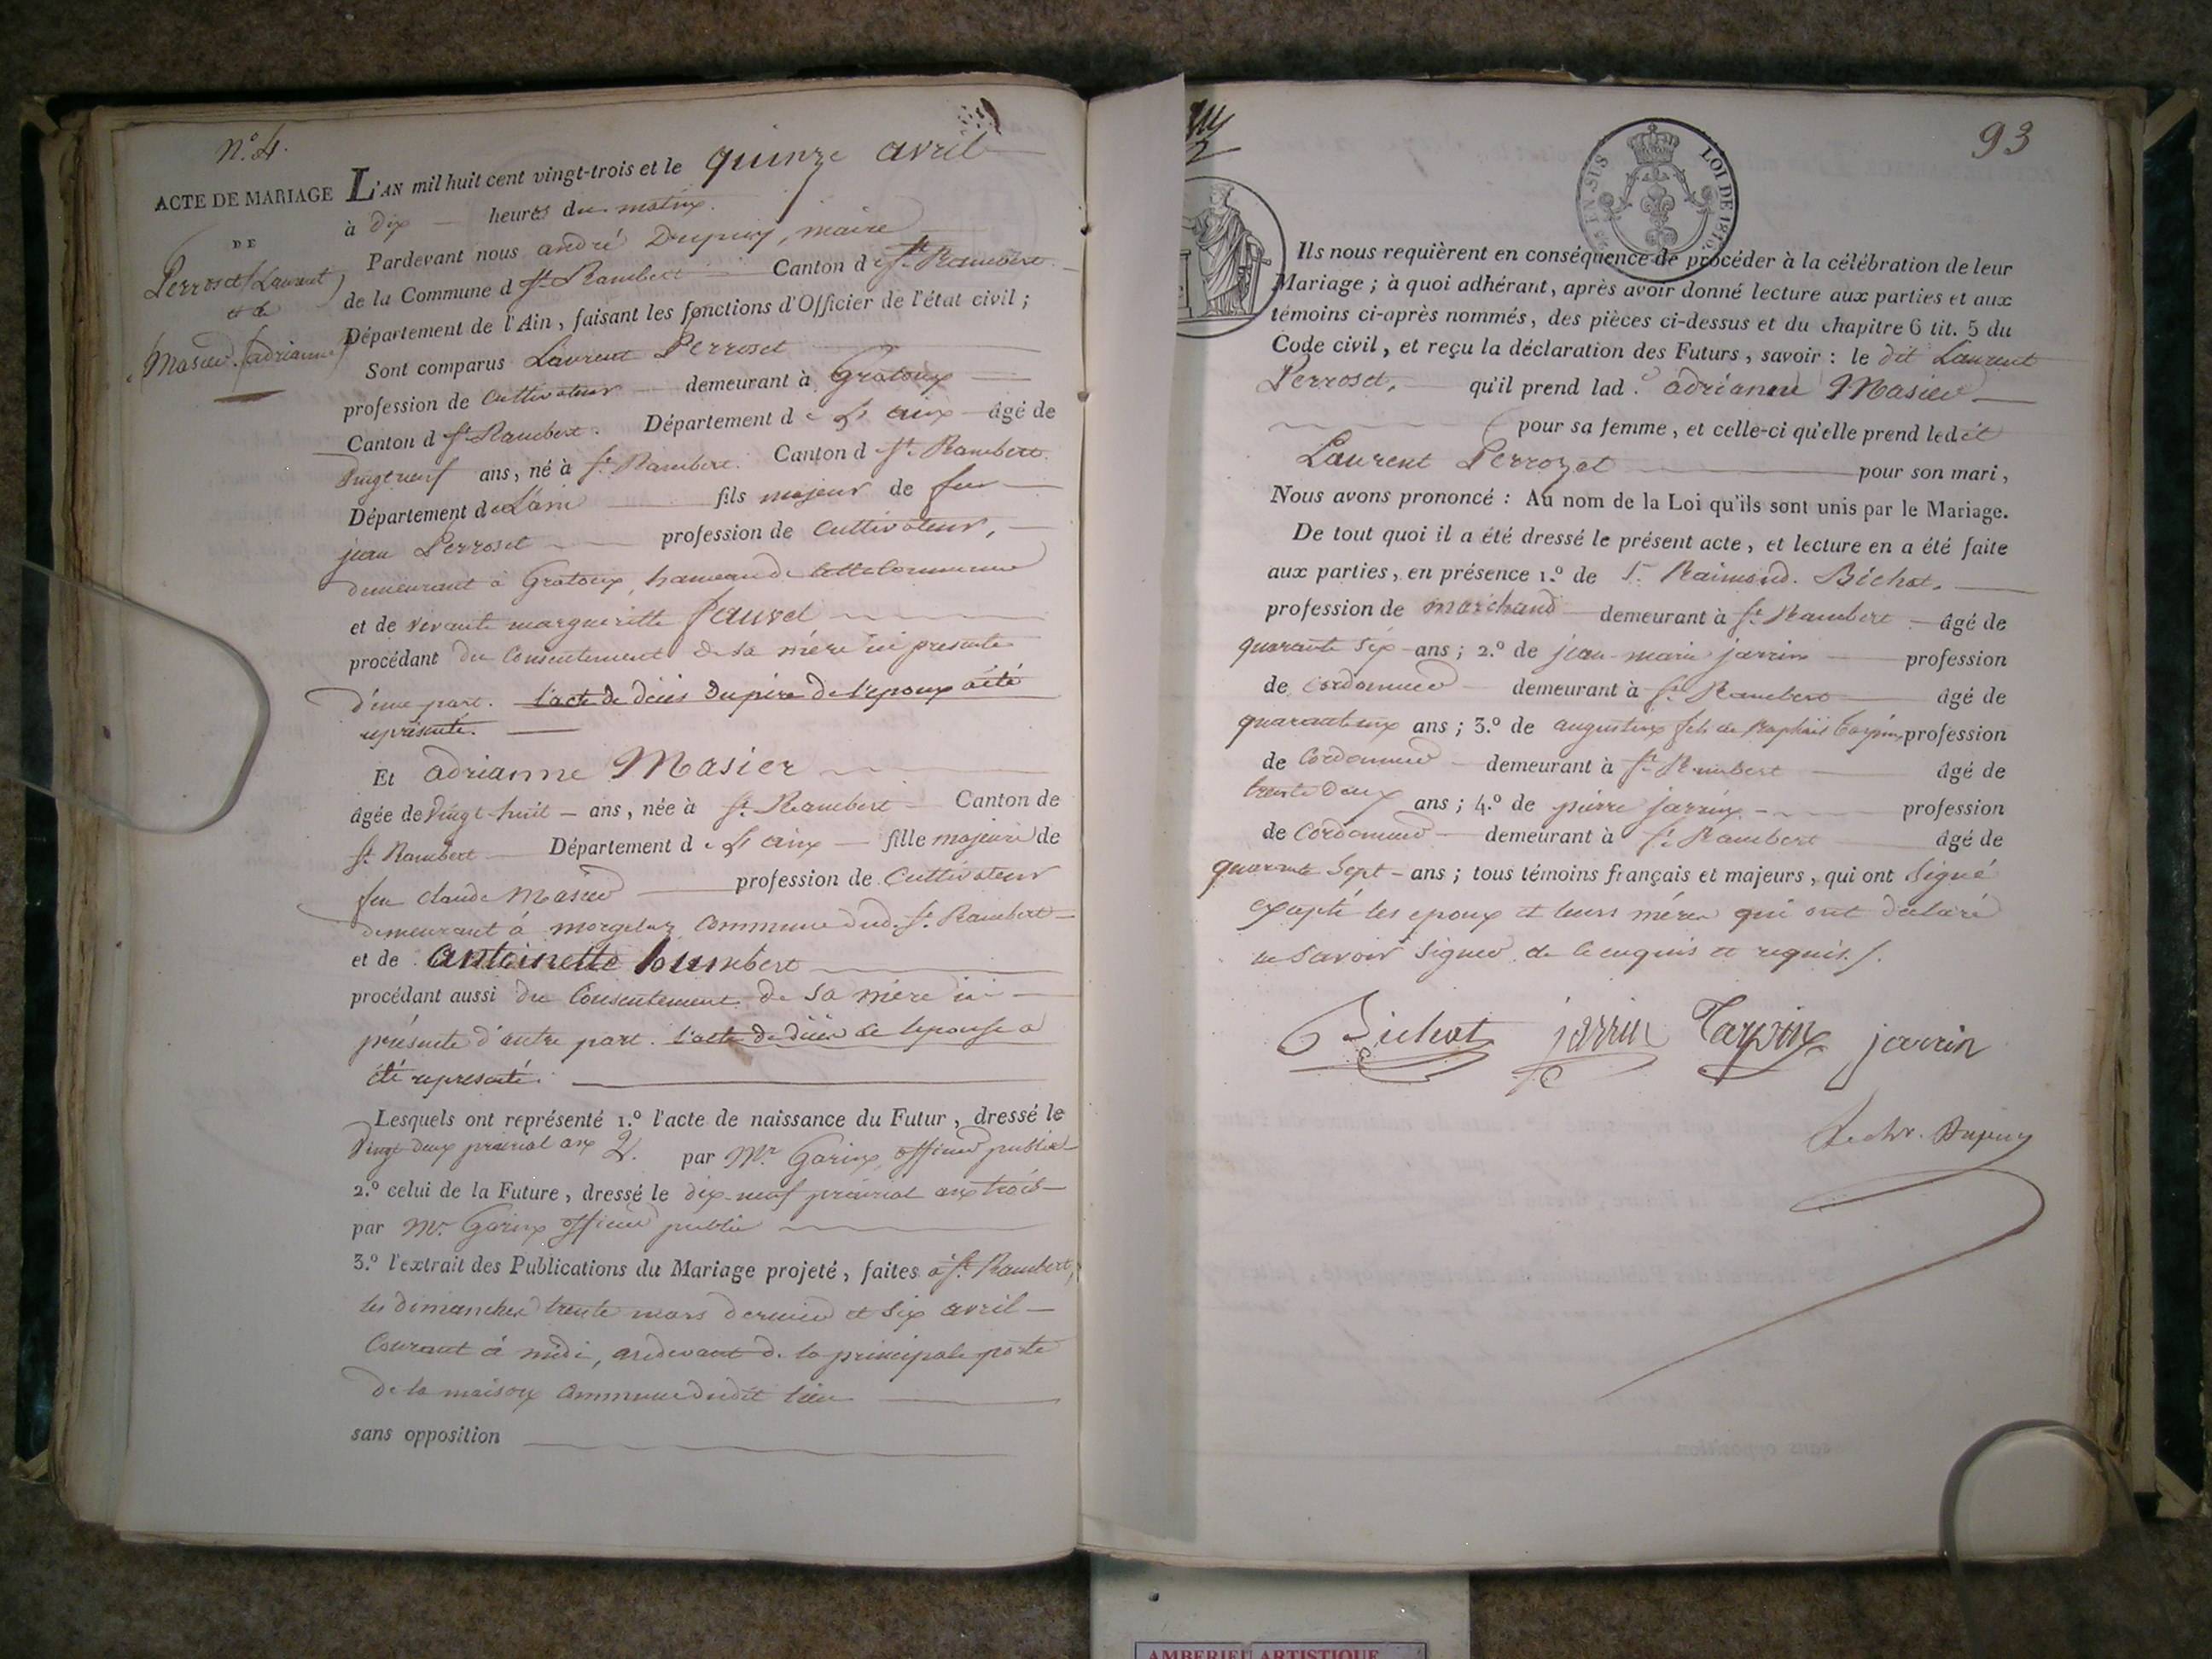 n.º 4.
ACTE DE MARIAGE
DE
Perroset (Laurent)
et de
Masier (adrianne)
L'AN mil huit cent vingt-trois et le quinze avril
à dix heures du matin.
Pardevant nous andré Dupuy, maire
de la Commune d St. Rambert Canton de St. Rambert
Département de l'Ain, faisant les fonctions d'Officier de l'état civil ;
Sont comparus Laurent Perroset
profession de cultivateur demeurant à Gratoux
Canton d St. Rambert. Département de L'ain âgé de
vingt neuf ans, né à St. Rambert. Canton d St. Rambert.
Département de L'ain fils majeur de feu
jean Perroset profession de cultivateur,
demeurant à Gratoux, hameau de cette Commune
et de vivante margueritte fauvet
procédant du Consentement de sa mère ici presente
d'une part. l'acte de décès du père de l'epoux a été
représenté.
Et adrianne Masier
âgée de vingt-huit ans, née à St. Rambert Canton de
St. Rambert Département de L'ain fille majeure de
feu claude Masier profession de Cultivateur
demeurant à morgelas Commune dud. St. Rambert
et de antoinette
procédant aussi du Consentement de sa mère ici
présente d'autre part. l'acte de décès de lepouse a
été représenté.
Lesquels ont représenté 1.º l'acte de naissance du Futur, dressé le
vingt deux prairial an 2. par Mr. Garin, officier public
2.º celui de la Future, dressé le dix-neuf prairial an trois
par Mr. Garin officier public
3.º l'extrait des Publications du Mariage projeté, faites à St. Rambert,
les dimanches trente mars dernier et six avril
Courant à midi, audevant de la principale porte
de la maison Commune dudit lieu
sans opposition
93
EN SUS
LOI DE 1816.
Ils nous requièrent en conséquence de procéder à la célébration de leur
Mariage ; à quoi adhérant, après avoir donné lecture aux parties et aux
témoins ci-après nommés, des pièces ci-dessus et du chapitre 6 tit. 5 du
Code civil, et reçu la déclaration des Futurs, savoir : le dit Laurent
Perroset, qu'il prend lad. e adrianne Masier
pour sa femme, et celle-ci qu'elle prend ledit
Laurent Perrozet pour son mari,
Nous avons prononcé : Au nom de la Loi qu'ils sont unis par le Mariage.
De tout quoi il a été dressé le présent acte, et lecture en a été faite
aux parties, en présence 1.º de Sr. Raimond. Bichat.
profession de marchand demeurant à St. Rambert âgé de
quarante six ans ; 2.º de jean-marie jarrin profession
de cordonnier demeurant à St. Rambert âgé de
ans ; 3.º de augustin fils de Raphaël Tarpin profession
de Cordonnier demeurant à St. Rambert âgé de
trente deux ans ; 4.º de pierre jarrin profession
de Cordonnier demeurant à St. Rambert âgé de
quarante sept ans ; tous témoins français et majeurs, qui ont signé
excepté les epoux et leurs mères qui ont déclaré
ne savoir signer de ce enquis et requis.
Bichat jarrin Tarpin jarrin
Le chr. Dupuy
sans opposition
AMBERIEU ARTISTIQUE